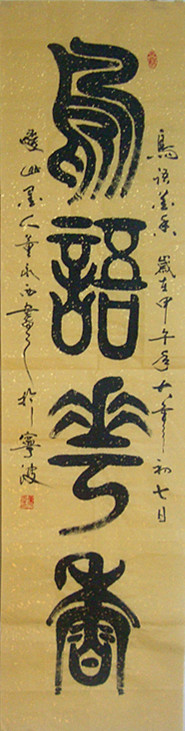 鳥語花香
鳥語花香 歲在甲午年十八年初七日
山墨人董永西書於寧波